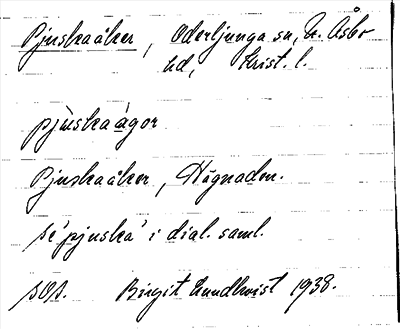 Pjuskaåker, Oderljunga sn, N. Åsbo
hd, Krist. l.
pjùskaågor
Pjuskaåker, Hägnaden.
se 'pjuska' i dial. saml.
sOs. Birgit Lundkvist 1938.